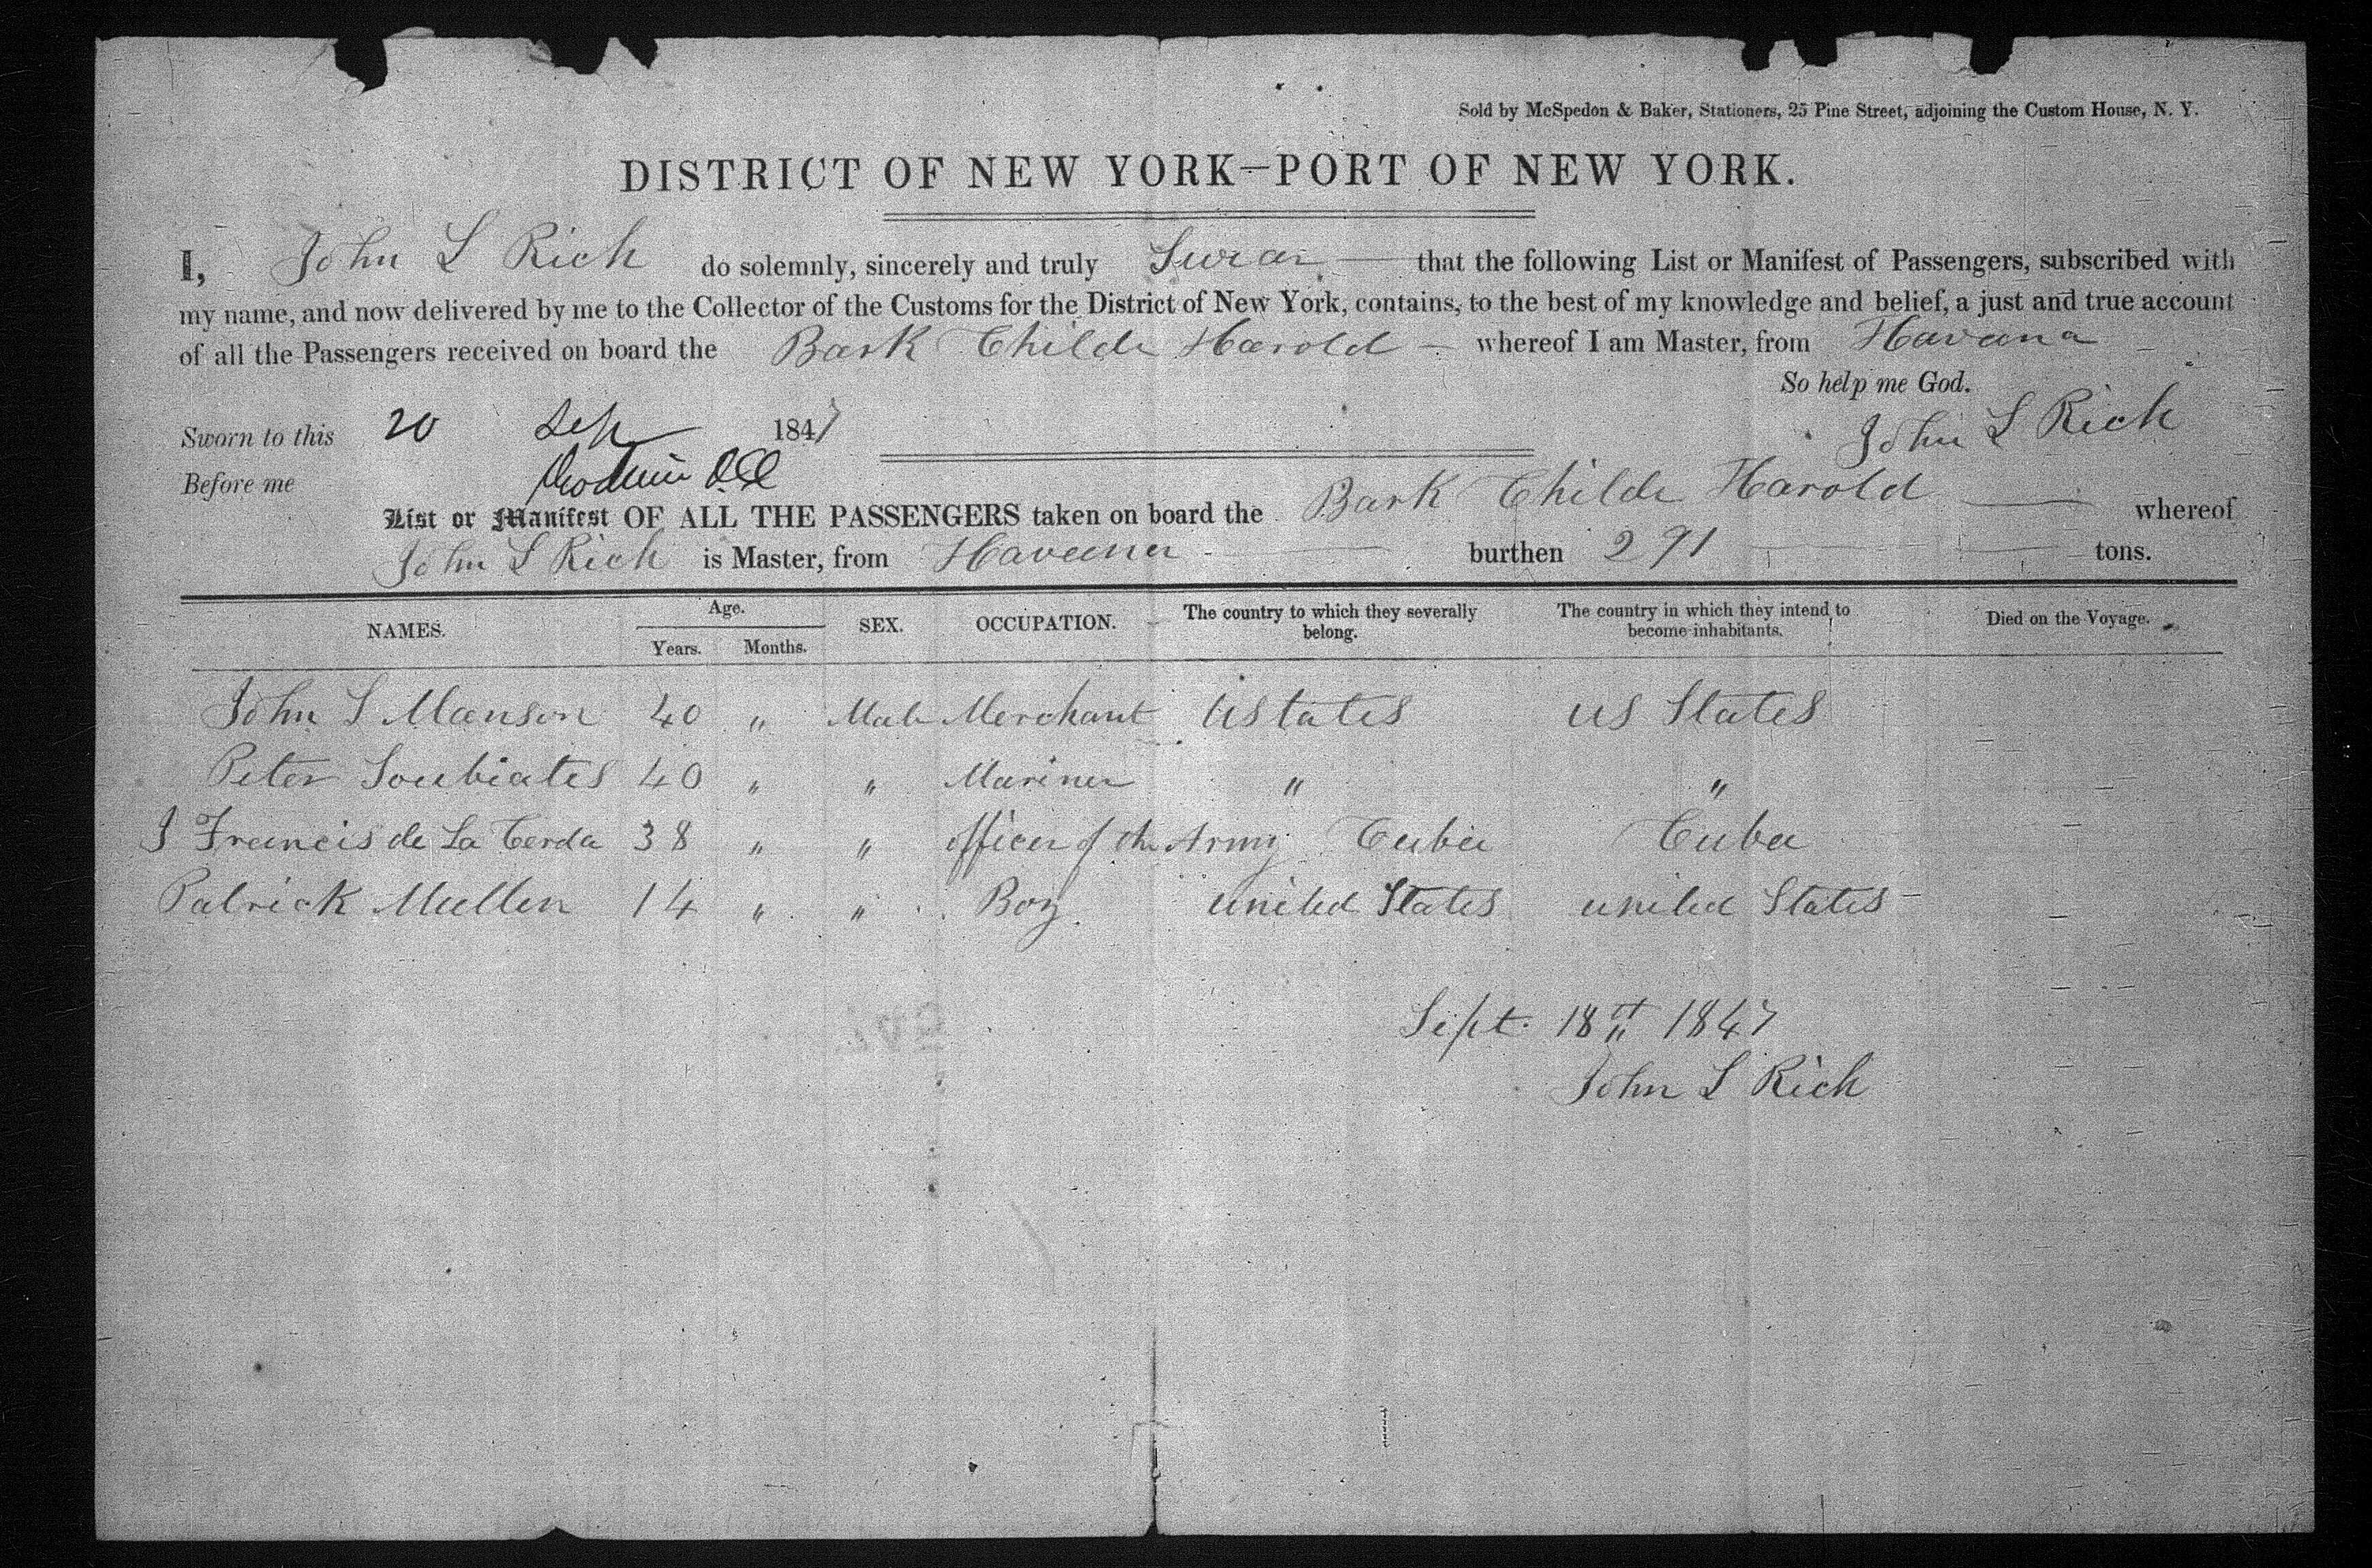 Sold by McSpedon & Baker, Stationers, 25 Pine Street, adjoining the Custom House, N. Y.
DISTRICT OF NEW YORK—PORT OF NEW YORK.
I, John L Rich do solemnly, sincerely and truly Swear that the following List or Manifest of Passengers, subscribed with
my name, and now delivered by me to the Collector of the Customs for the District of New York, contains, to the best of my knowledge and belief, a just and true account
of all the Passengers received on board the Bark Childe Harold whereof I am Master, from Havana
So help me God.
Sworn to this 20 Sep 1847 John L Rich
Before me
List or Manifest OF ALL THE PASSENGERS taken on board the Bark Childe Harold whereof
John L Rich is Master, from Havana burthen 291 tons.
NAMES. Age. Years. Months. SEX. OCCUPATION. The country to which they severally belong. The country in which they intend to become inhabitants. Died on the Voyage.
John S Manson 40 " Male Merchant U States US States
Peter Soubiates 40 " " Mariner " "
J Francis de La Cerda 38 " " officer of the Army Cuba Cuba
Patrick Mullen 14 " " Boy United States United States
Sept. 18th 1847
John L Rich